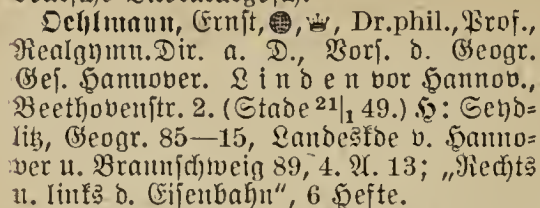 Oehlmann, Ernst, Dr.phil., Prof.,
Realgymn.Dir. a. D., Vors. d. Geogr.
Ges. Hannover. Linden vor Hannov.,
Beethovenstr. 2. (Stade 21|1 49.) H: Seyd=
litz, Geogr. 85—15, Landeskde v. Hanno=
ver u. Braunschweig 89, 4. A. 13; „Rechts
u. links d. Eisenbahn“, 6 Hefte.